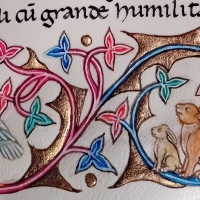 li cũ grande humilita